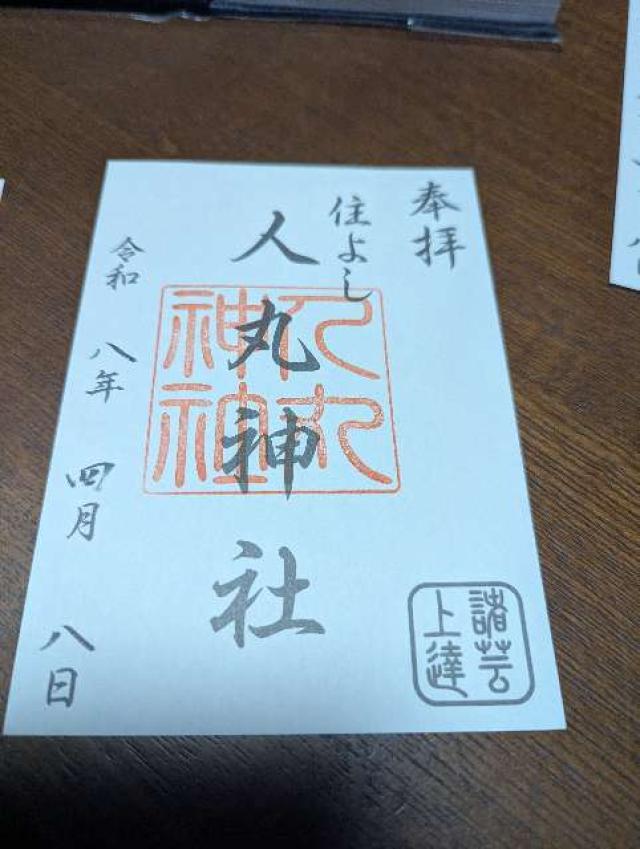 奉拝
住よし
人丸神社
人丸
神社
令和 八年 四月 八日
諸芸
上達